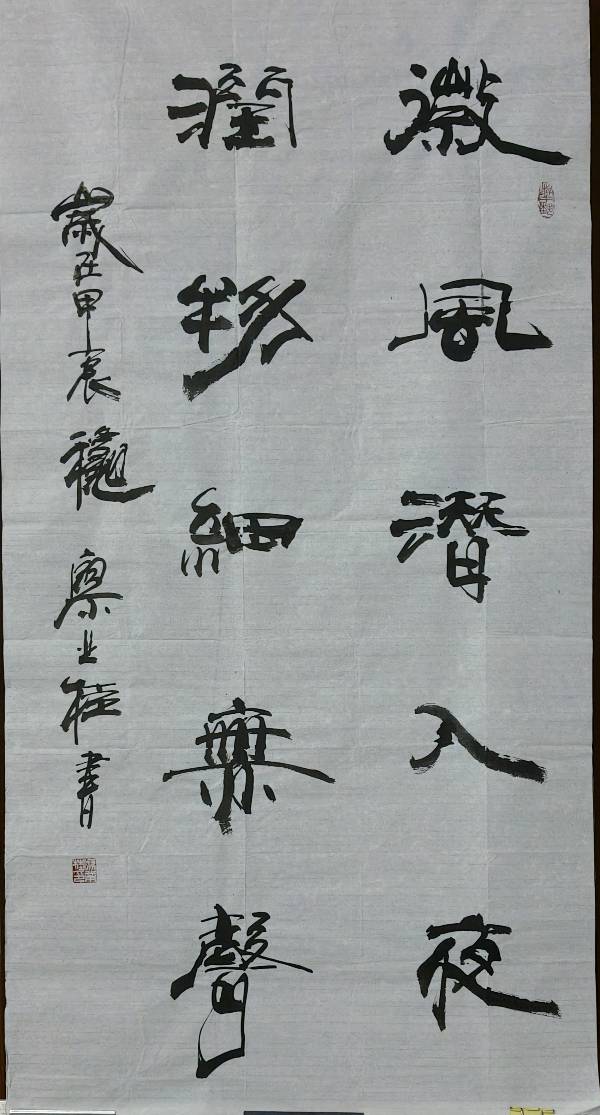 微風潛入夜
潤物細無聲
歲在甲辰龝 业桂書